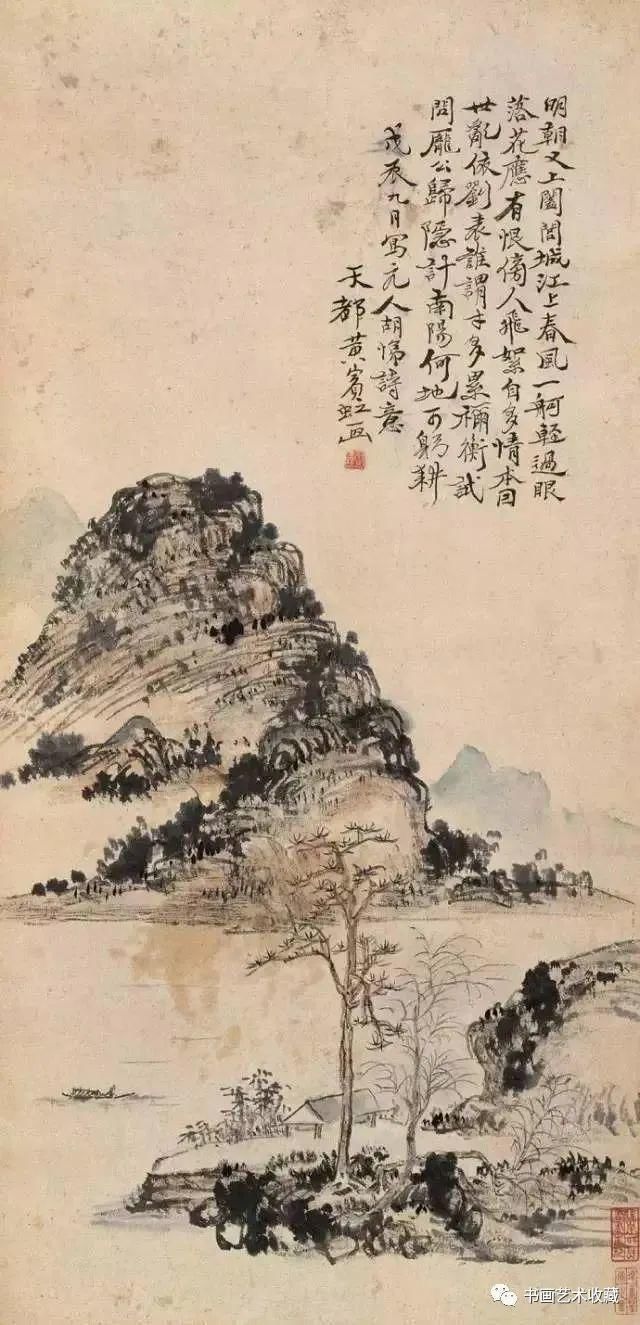 明朝又上闔閭城江上春風一舸輕過眼
落花應有恨傍人飛絮自多情本因
世亂依劉表誰謂才多累禰衡試
問龐公歸隱計南陽何地可躬耕
戊辰九月寫元人胡詩意
天都黃賓虹画
书画艺术收藏